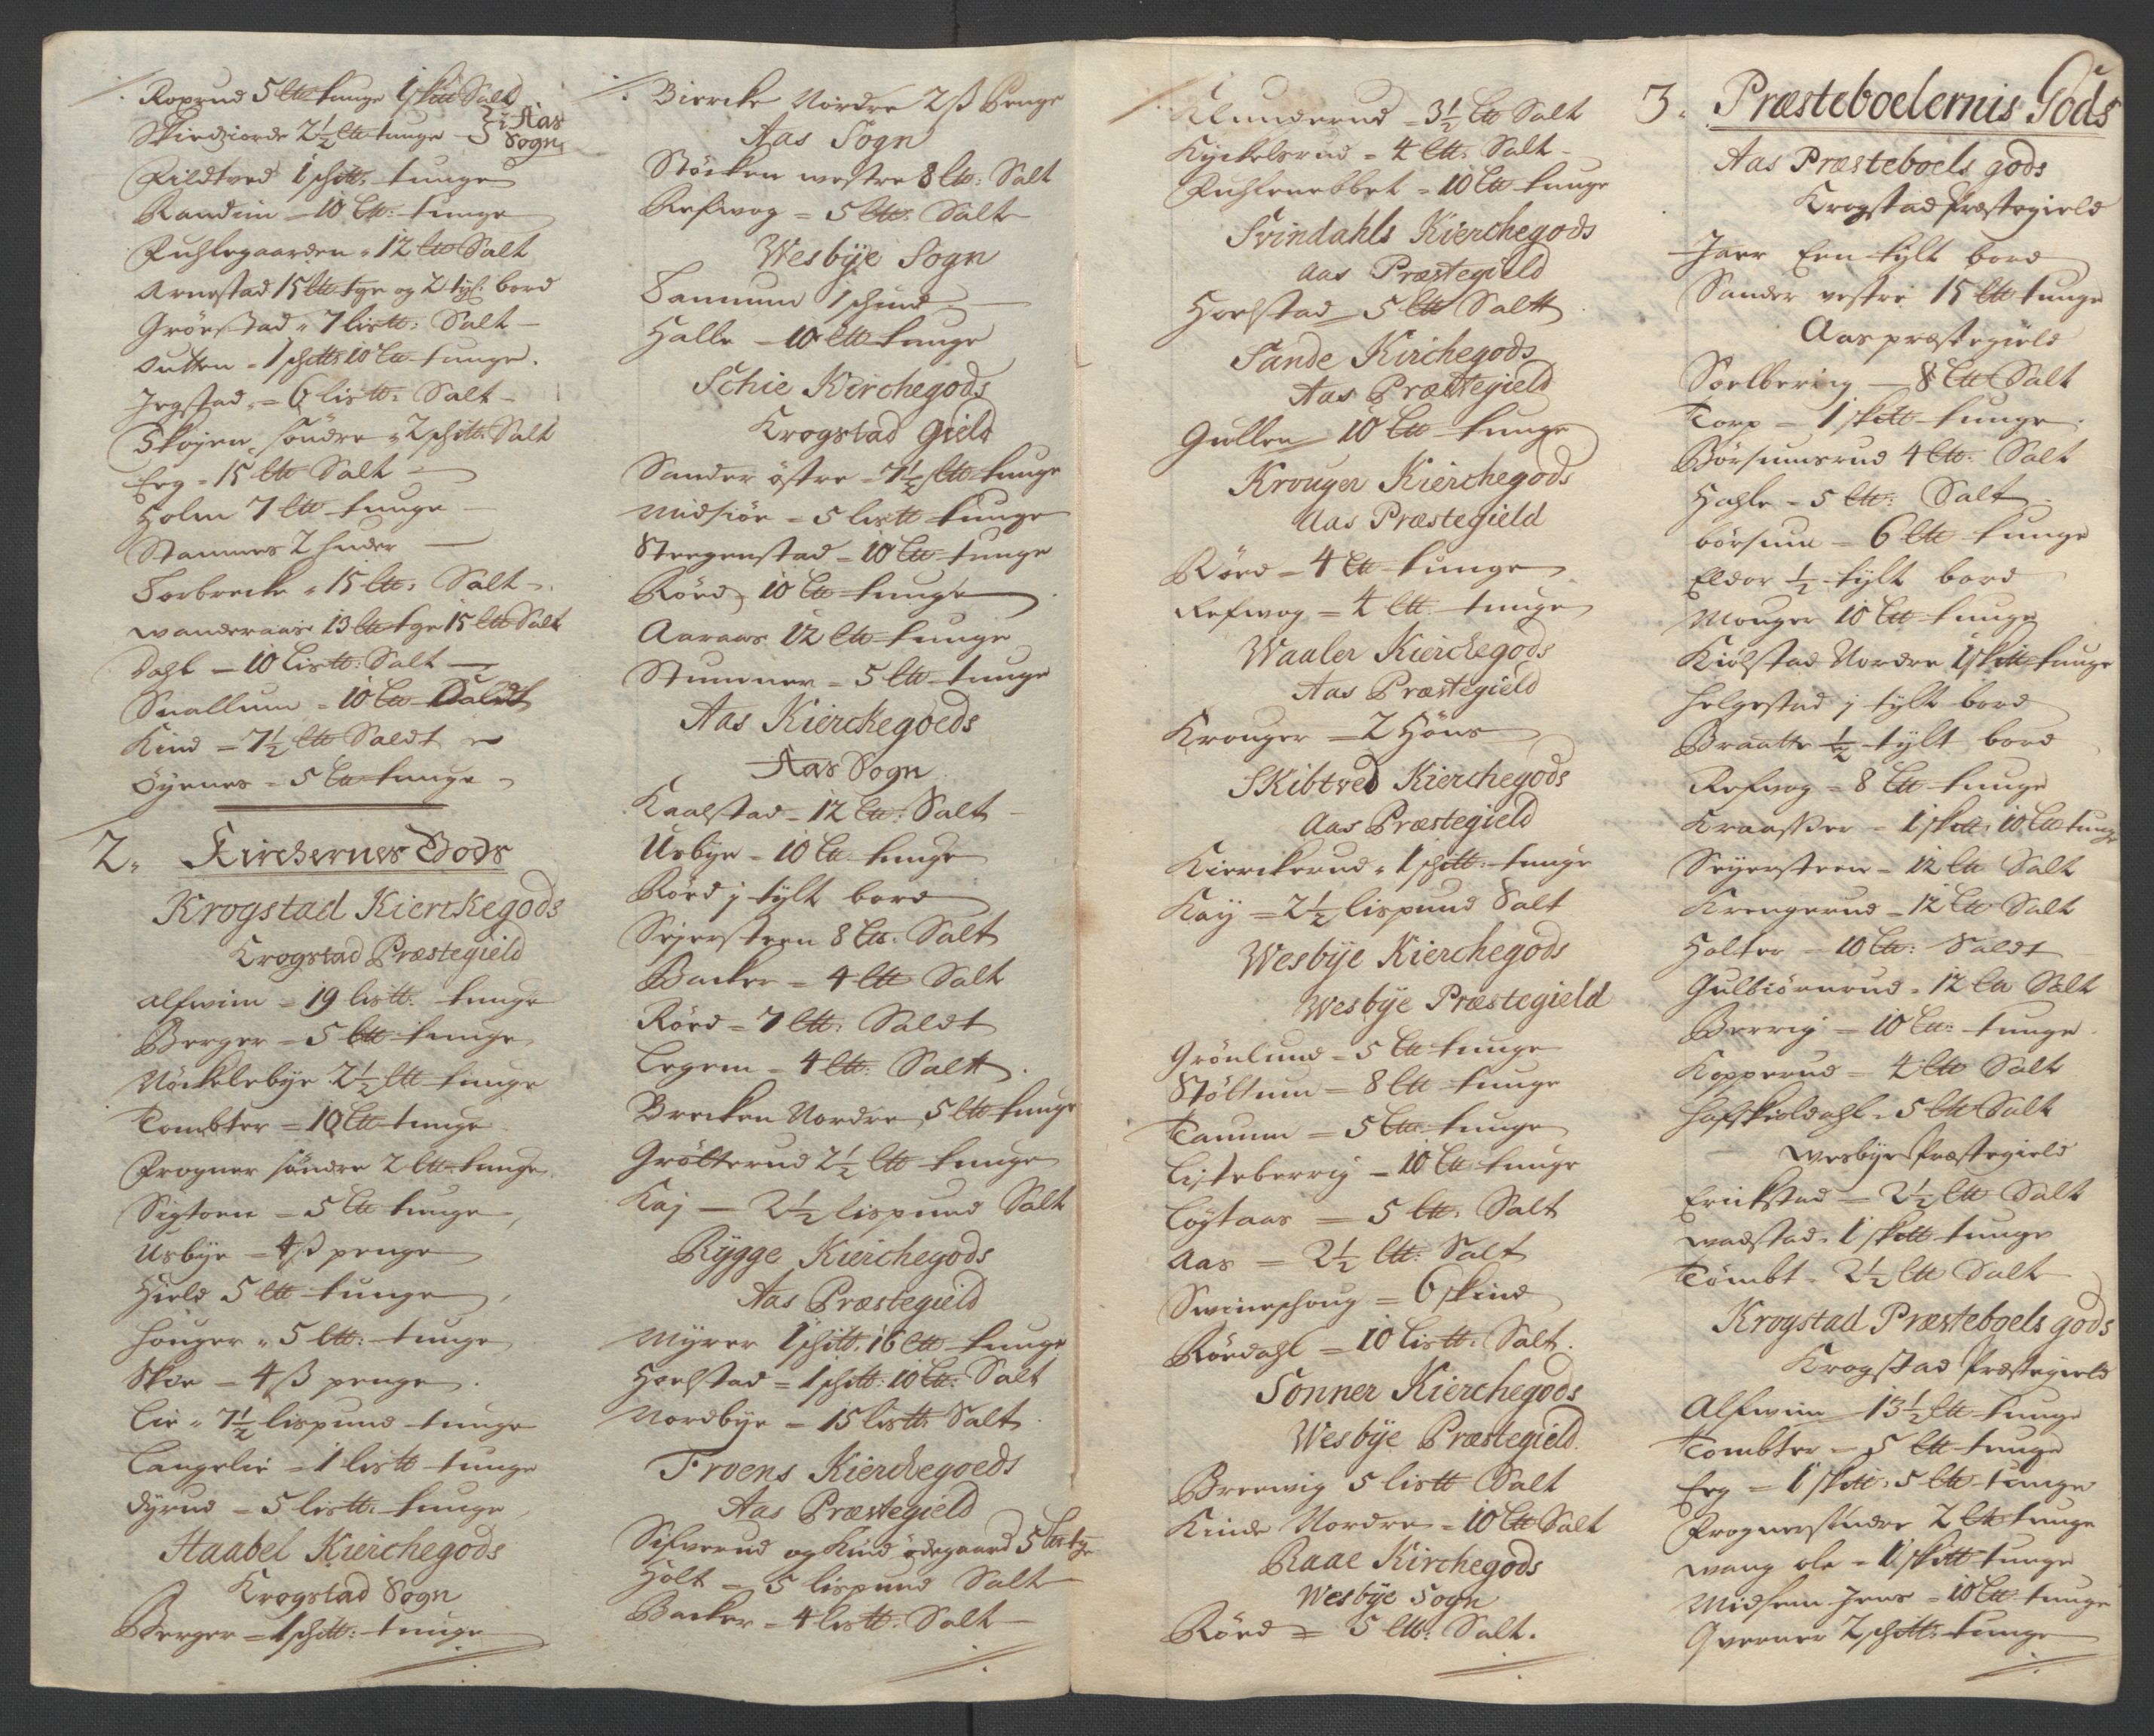 Roperud 5 ltt tunge 1 skitt Salt
Skiedziorde 2½ ltt tunge } i Aas Sogn
Fildtved 1 schitt. tunge
Randim - 10 ltt: tunge
Fuhlegaarden = 12 ltt Salt
Arnestad 15 ltt tge og 2 tyl. bord
Grøestad = 7 listt: Salt -
Outten = 1 schitt 10 ltt tunge.
Jegstad = 6 listt. Salt -
Skøyen søndre = 2 schitt. Salt
Eeg = 15 ltt Salt -
Holm 7 ltt tunge -
Stamnes 2 huder -
Torbreche = 15 ltt. Salt -
Wanderaas 13 ltt tge 15 ltt Salt
Dahl - 10 Listt. Salt -
Snallum = 10 ltt Saldt
Kind = 7½ ltt Saldt
Øyenes = 5 ltt tunge
2. Kirchernes Gods
Krogstad Kierckegods
Krogstad Præstegield
Alfwim = 19 listt. tunge
Berger = 5 ltt tunge
Nøckelebye 2½ ltt tunge
Tombter = 10 ltt tunge
Frogner søndre 2 ltt tunge
Sigtoen - 5 ltt tunge
Usbye - 4 ß penge
Hield 5 ltt tunge
Houger = 5 ltt: tunge
Skoe - 4 ß penge.
Lie = 7½ lispund tunge
Langelie = 1 listt tunge
Dyrud = 5 listt. tunge
Haabel Kierchegods
Krogstad Sogn
Berger = 1 schitt: tunge
Biercke Nordre 2 ß Penge
Aas Sogn
Støcken westre 8 ltt: Salt
Refwog = 5 ltt. Salt
Wesbye Sogn
Sannum 1 schind
Halle - 10 ltt tunge
Schie Kirchegods
Krogstad gield
Sander østre = 7½ ltt tunge
Midsiøe = 5 listt tunge
Steegenstad = 10 ltt tunge
Røed 10 ltt tunge
Aaraas 12 ltt tunge
Stummer = 5 ltt tunge
Aas Kierckegoeds
Aas Sogn
Kaalstad = 12 ltt: Salt -
Usbye = 10 ltt tunge
Røed j tylt bord
Sejersteen 8 ltt. Salt
Backer = 4 ltt Salt
Røed = 7 ltt. Saldt
Legem = 4 ltt. Saltt.
Brecken Nordre 5 ltt tunge
Grøtterud 2½ ltt tunge
Kaj - 2½ lispund Salt
Rygge Kierchegods
Aas Præstegield
Myrer 1 schitt. 16 ltt tunge
Hoelstad = 1 schitt: 10 ltt: Salt
Nordbye = 15 listt Salt
Froens Kierchegoeds
Aas Præstegield
Sifverud og Kind ødegaard 5 ltt tge
Holt = 5 lispund Salt
Backer = 4 listt. Salt
Klunderud = 3½ ltt Salt
Kyckelsrud = 4 ltt. Salt -
Fuhlenebbet = 10 ltt tunge
Svindahls Kierchegods
Aas Præstegield
Hoelstad 5 ltt Saltt
Sande Kirchegods
Aas Præstegield
Gullen 10 ltt tunge
Krouger Kierchegods
Aas Præstegield
Røed = 4 ltt tunge
Refwog = 4 ltt. tunge
Waaler Kierchegods
Aas Præstegield
Krouger = 2 Høns
Skibtved Kierchegods
Aas Præstegield
Kierckerud = 1 schitt: tunge
Kay = 2½ lispund Salt
Wesbye Kierchegods
Wesbye Præstegield
Grønlund = 5 ltt tunge
Støttum = 8 ltt tunge
Tanum = 5 ltt tunge
Listeberrig = 10 ltt tunge
Løytaas = 5 ltt. Salt
Aas = 2½ ltt: Salt
Swineschoug = 6 skind
Røedahl = 10 listt. Salt.
Sonner Kierchegods
Wesbye Præstegield.
Breewig 5 listt Salt
Kinde Nordre = 10 ltt Salt
Raae Kirchegods
Wesbye Sogn
Røed = 5 ltt. Salt.
3. Præsteboelernis Gods
Aas Præsteboels gods
Krogstad Præstegield
Jaer Een tylt bord
Sander vestre 15 ltt tunge
Aas præstegield
Soelberrig - 8 ltt Salt
Torp = 1 skitt tunge.
Børsumsrud 4 ltt. Salt
Hahle = 5 ltt. Salt
Børsum = 6 ltt tunge
Eldor ½ tylt bord
Mouger 10 ltt tunge
Kiølstad Nordre 1 skitt tunge
Helgestad j tylt bord
Braatte ½ tylt bord
Refvog = 8 ltt tunge
Kraasker = 1 skitt. 10 ltt tunge
Seyersteen = 12 ltt Salt
Krengerud = 12 ltt Salt
Holter = 10 ltt: Saldt
Gulbiørnrud = 12 ltt Salt
Berrig = 10 ltt: tunge
Kopperud = 4 ltt Salt
Hafskioldahl = 5 ltt Salt
Wesbye Præstegield
Erickstad = 2½ ltt Salt
Wadstad = 1 skitt tunge
Tømbt = 2½ ltt Salt
Krogstad Præsteboels gods
Krogstad Præstegield
Alfwim 13½ ltt tunge
Tombter = 5 ltt tunge
Eeg = 1 skitt. 5 ltt tunge
Frogner søndre 2 ltt tunge
Wang ole = 1 skitt tunge
Midsem Jens = 10 ltt tunge
Qverner 2 schitt. tunge